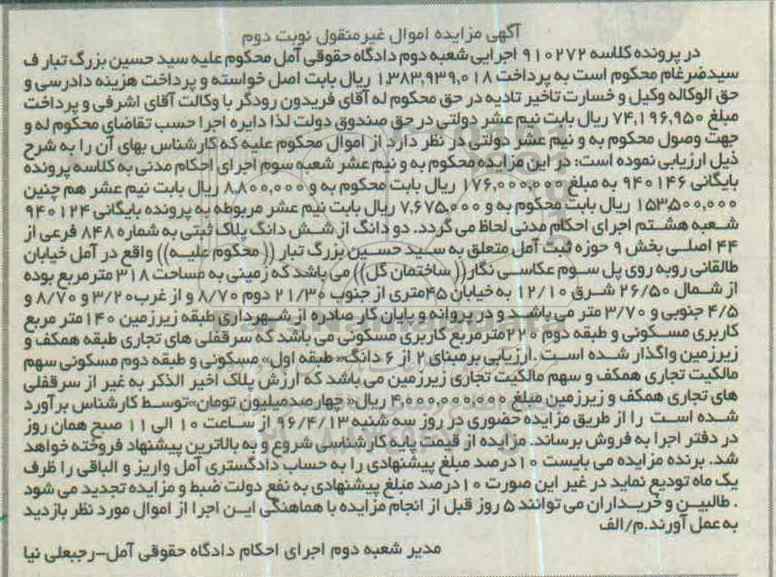 آگهی مزایده اموال غیرمنقول نوبت دوم
در پرونده کلاسه ۹۱۰۲۷۲ اجرایی شعبه دوم دادگاه حقوقی آمل محکوم علیه سید حسین بزرگ تبار ف
سیدضرغام محکوم است به پرداخت ۱,۳۸۳,۹۳۹,۰۱۸ ریال بابت اصل خواسته و پرداخت هزینه دادرسی و
حق الوکاله وکیل و خسارت تاخیر تادیه در حق محکوم له آقای فریدون رودگر با وکالت آقای اشرفی و پرداخت
مبلغ ۷۴,۱۹۶,۹۵۰ ریال بابت نیم عشر دولتی در حق صندوق دولت لذا دایره اجرا حسب تقاضای محکوم له و
جهت وصول محکوم به و نیم عشر دولتی در نظر دارد از اموال محکوم علیه که کارشناس بهای آن را به شرح
ذیل ارزیابی نموده است: در این مزایده محکوم به و نیم عشر شعبه سوم اجرای احکام مدنی به کلاسه پرونده
بایگانی ۹۴۰۱۴۶ به مبلغ ۱۷۶,۰۰۰,۰۰۰ ریال بابت محکوم به و ۸,۸۰۰,۰۰۰ ریال بابت نیم عشر هم چنین
۱۵۳,۵۰۰,۰۰۰ ریال بابت محکوم به و ۷,۶۷۵,۰۰۰ ریال بابت نیم عشر مربوطه به پرونده بایگانی ۹۴۰۱۲۴
شعبه هشتم اجرای احکام مدنی لحاظ می گردد. دو دانگ از شش دانگ پلاک ثبتی به شماره ۸۴۸ فرعی از
۴۴ اصلی بخش ۹ حوزه ثبت آمل متعلق به سید حسین بزرگ تبار (( محکوم علیه)) واقع در آمل خیابان
طالقانی روبه روی پل سوم عکاسی نگار(( ساختمان گل)) می باشد که زمینی به مساحت ۳۱۸ مترمربع بوده
از شمال ۲۶/۵۰ شرق ۱۲/۱۰ به خیابان ۴۵متری از جنوب ۲۱/۳۰ دوم ۸/۷۰ و از غرب ۳/۲۰ و ۸/۷۰ و
۴/۵ جنوبی و ۳/۷۰ متر می باشد و در پروانه و پایان کار صادره از شهرداری طبقه زیرزمین ۱۴۰متر مربع
کاربری مسکونی و طبقه دوم ۲۲۰مترمربع کاربری مسکونی می باشد که سرقفلی های تجاری طبقه همکف و
زیرزمین واگذار شده است .ارزیابی برمبنای ۲ از ۶ دانگ« طبقه اول» مسکونی و طبقه دوم مسکونی سهم
مالکیت تجاری همکف و سهم مالکیت تجاری زیرزمین می باشد که ارزش پلاک اخیر الذکر به غیر از سرقفلی
های تجاری همکف و زیرزمین مبلغ ۴,۰۰۰,۰۰۰,۰۰۰ ریال« چهارصدمیلیون تومان»توسط کارشناس برآورد
شده است را از طریق مزایده حضوری در روز سه شنبه ۹۶/۴/۱۳ از ساعت ۱۰ الی ۱۱ صبح همان روز
در دفتر اجرا به فروش برساند. مزایده از قیمت پایه کارشناسی شروع و به بالاترین پیشنهاد فروخته خواهد
شد. برنده مزایده می بایست ۱۰درصد مبلغ پیشنهادی را به حساب دادگستری آمل واریز و الباقی را ظرف
یک ماه تودیع نماید در غیر این صورت ۱۰درصد مبلغ پیشنهادی به نفع دولت ضبط و مزایده تجدید می شود
. طالبین و خریداران می توانند ۵ روز قبل از انجام مزایده با هماهنگی این اجرا از اموال مورد نظر بازدید
به عمل آورند.م/الف
مدیر شعبه دوم اجرای احکام دادگاه حقوقی آمل-رجبعلی نیا